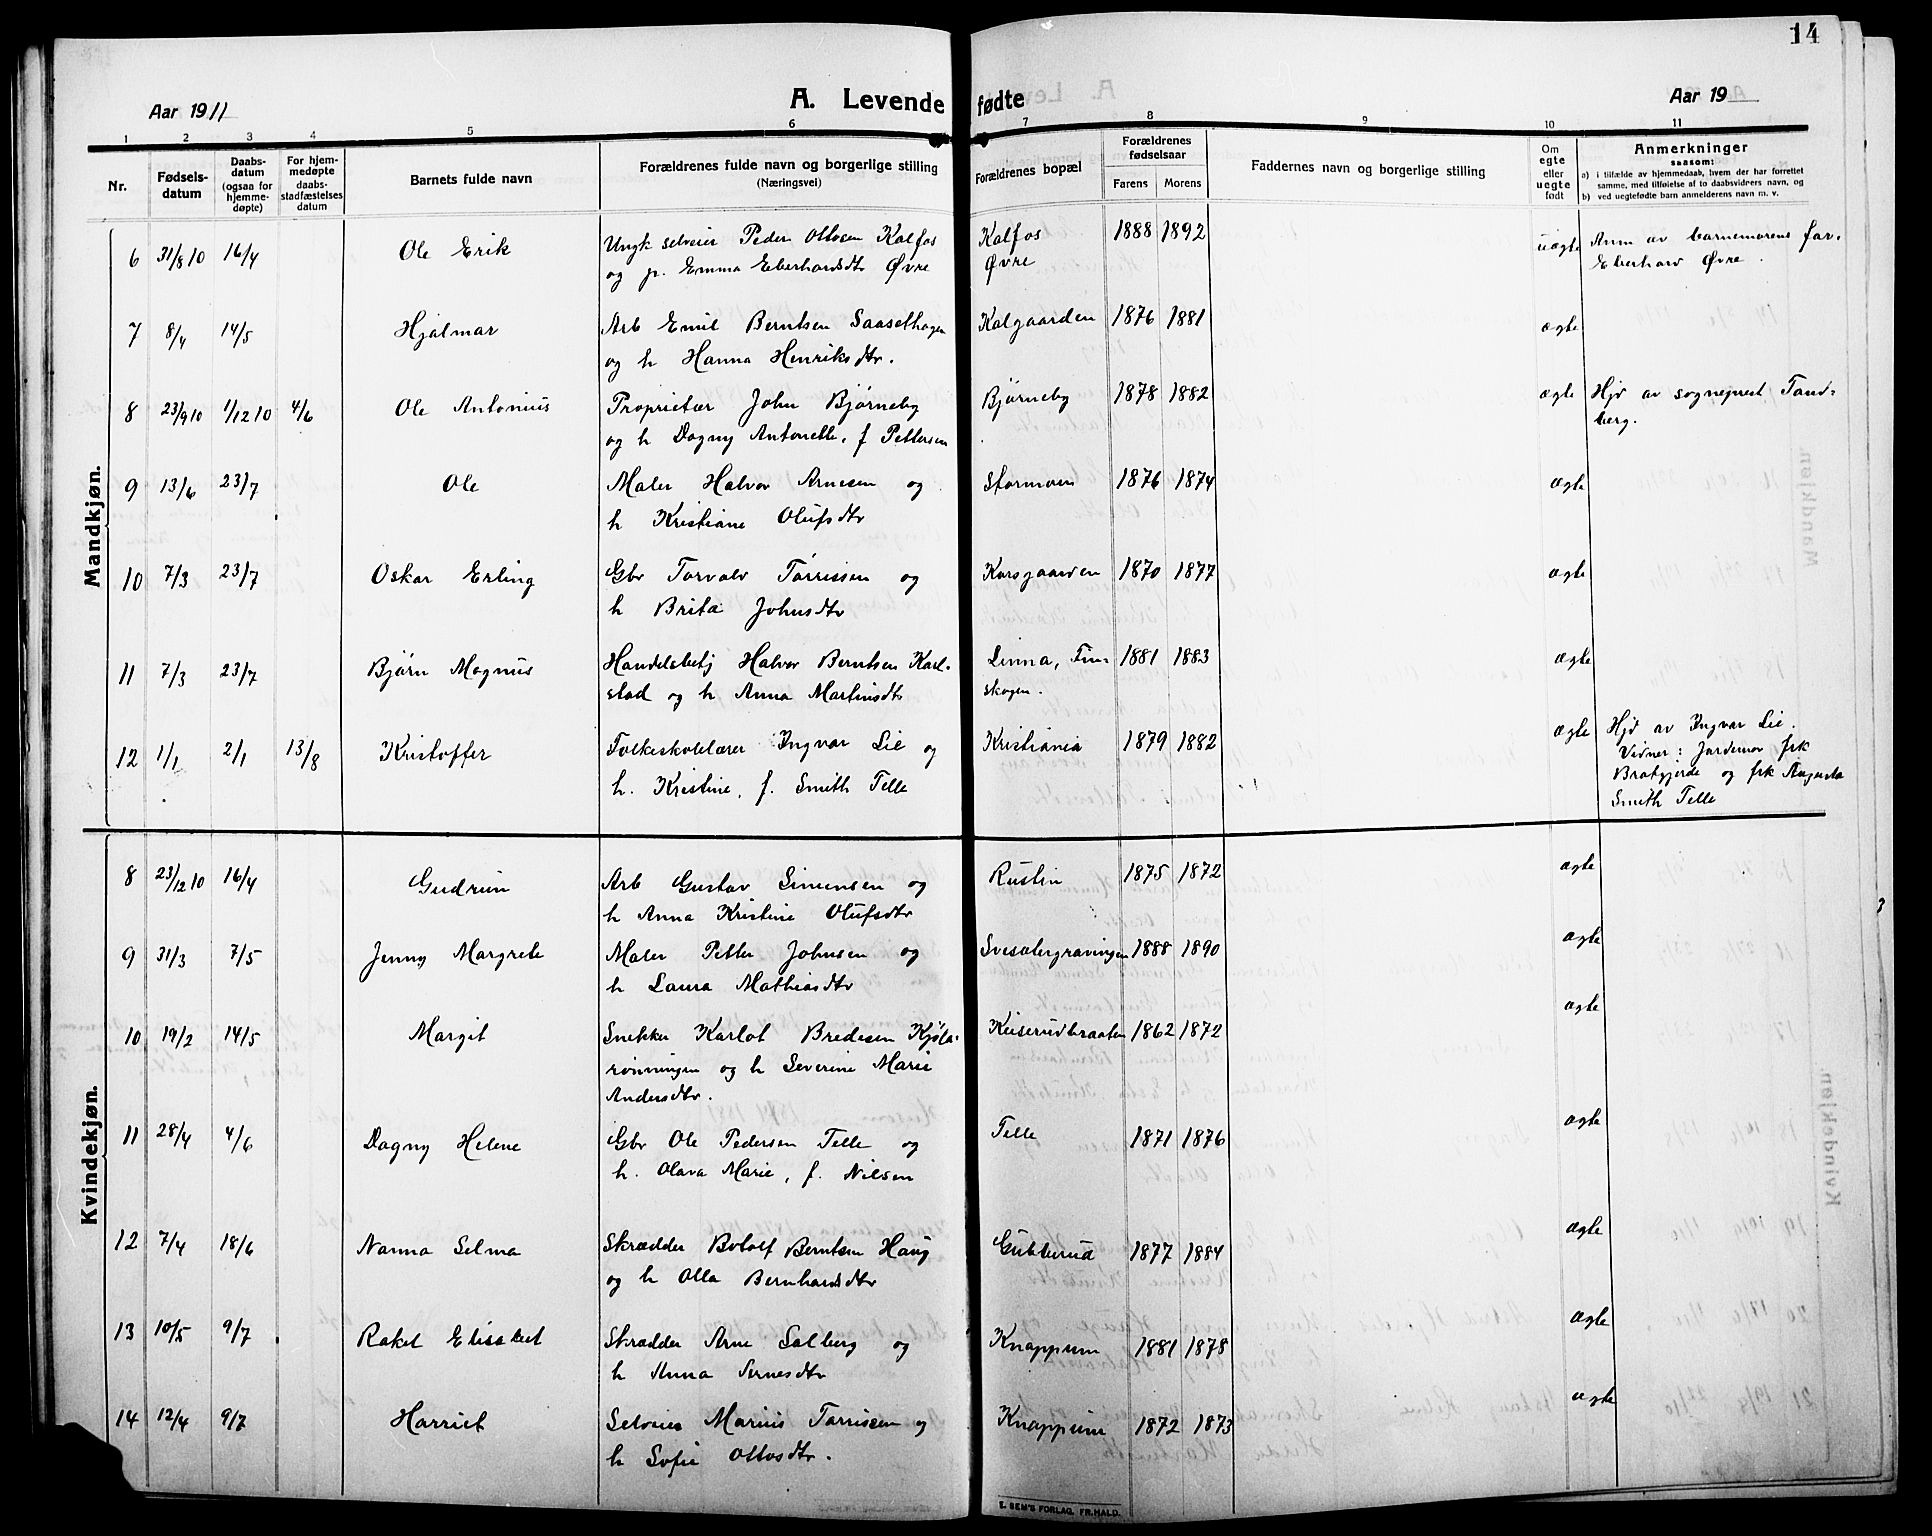 14
Aar 1911
A. Levende fødte
Aar 19
1 2 3 4 5 6 7 8 9 10 11
Nr.
Fødsels-
datum
Daabs-
datum
(ogsaa for
hjemme-
døpte)
For hjem-
medøpte
daabs-
stadfæstelses
datum
Barnets fulde navn
Forældrenes fulde navn og borgerlige stilling
(Næringsvei)
Forældrenes bopæl
Forældrenes
fødselsaar
Farens Morens
Faddernes navn og borgerlige stilling
Om
egte
eller
uegte
født
Anmerkninger
saasom:
a) i tilfælde av hjemmedaab, hvem der har forrettet
samme, med tilføielse af to daabsvidners navn, og
b) ved uegtefødte barn anmelderens navn m. v.
Mandkjøn.
6 31/8 10 16/4 Ole Erik Ungk selveier Peder Ottosen Kalfos Kalfos 1888 1892 uægte Anm av barnemorens far,
og p. Emma Eberhardsdtr Øvre Øvre Eberhard Øvre.
7 8/4 14/5 Hjalmar Arb Emil Berntsen Saasethagen Kalgaarden 1876 1881 ægte
og h Hanna Henriksdtr.
8 23/9 10 1/12 10 4/6 Ole Antonius Proprietær John Bjørneby Bjørneby 1878 1882 ægte Hjd av sogneprest Tand-
og h Dagny Antonette, f Pettersen berg.
9 13/6 23/7 Ole Maler Halvor Arnesen og Stormoen 1876 1874 ægte
h Kristiane Olufsdtr
10 7/3 23/7 Oskar Erling Gbr Torvald Torrissen og Korsgaarden 1870 1877 ægte
h Brita Johnsdtr
11 7/3 23/7 Bjørn Magnus Handelsbetj Halvor Berntsen Karl- Linna, Fin- 1881 1883 ægte
stad og h Anna Martinsdtr skogen.
12 1/1 2/1 13/8 Kristoffer Folkeskolelærer Ingvar Lie og Kristiania 1879 1882 ægte Hjd av Ingvar Lie.
h. Kristine, f. Smith Telle Vidner: Jordemor frk
Bratgjerde og frk Augusta
Smith Telle
Kvindekjøn.
8 23/12 10 16/4 Gudrun Arb Gustav Simensen og Rustin 1875 1872 ægte
h Anna Kristine Olufsdtr
9 31/3 7/5 Jenny Margrete Maler Petter Johnsen og 1888 1890 ægte
h Laura Mathiasdtr
10 19/2 14/5 Margit Snekker Karlot Bredesen Kjøla- Keiserudbraaten 1862 1872 ægte
rønningen og h Severine Marie
Andersdtr.
11 28/4 4/6 Dagny Helene Gbr Ole Pedersen Telle og Telle 1871 1876 ægte
h. Olava Marie, f. Nilsen
12 7/4 18/6 Nanna Selma Skrædder Botolf Berntsen Haug Gubberud 1877 1884 ægte
og h Olla Bernhardsdtr
13 10/5 9/7 Rakel Elisabet Skrædder Arne Solberg og Knappum 1881 1878 ægte
h Anna Arnesdtr
14 12/4 9/7 Harriet Selveier Marius Torrissen og Knappum 1872 1873 ægte
h Sofie Ottosdtr.
E. SEM'S FORLAG, FR.HALD.